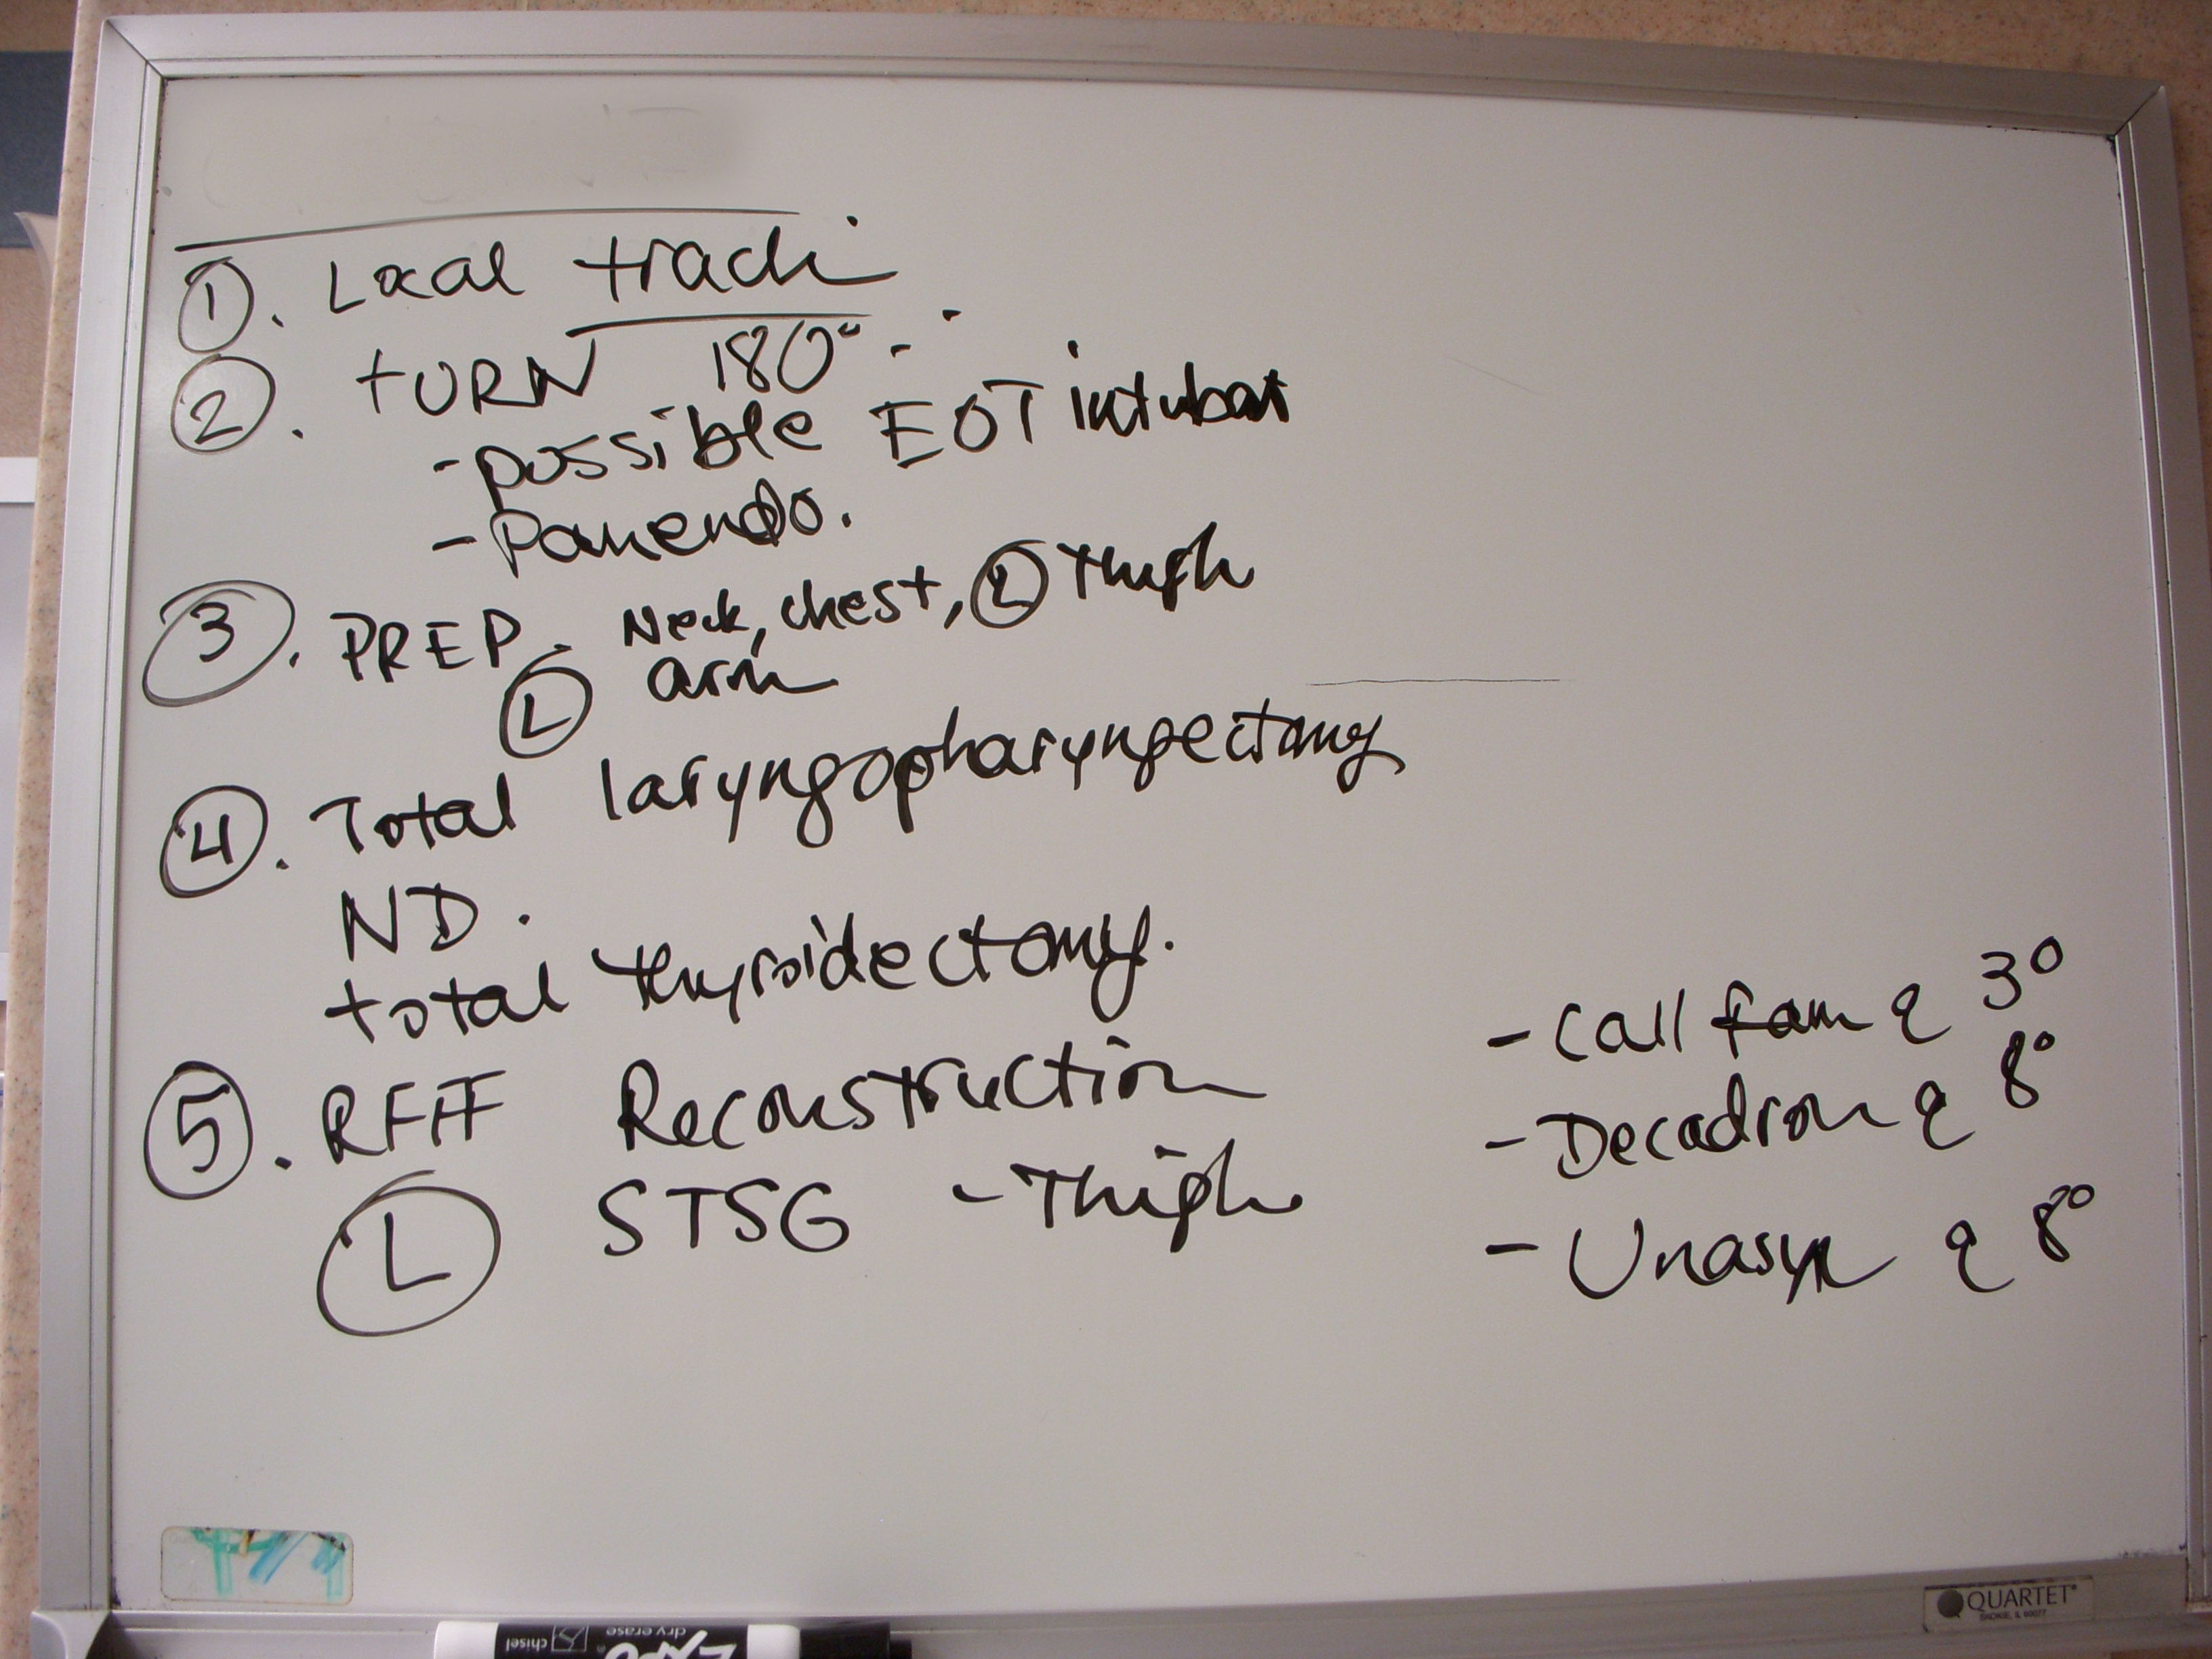 ① . Local trach
② . TURN 180°
- possible EOT intubat
- Panendo.
③ . PREP. Neck, chest, Ⓛ Thigh
Ⓛ arm
④ . Total laryngopharyngectomy
ND .
total thyroidectomy.
⑤ . RFFF Reconstruction
Ⓛ STSG - Thigh
- Call fam q 3°
- Decadron q 8°
- Unasyn q 8°
QUARTET®
SKOKIE, IL 60077
dry erase
chisel
EXPO